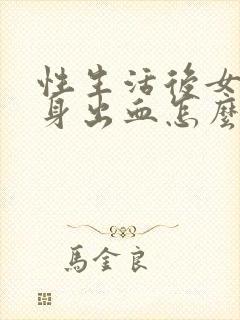 性生活後女
身出血怎麼
馬金良